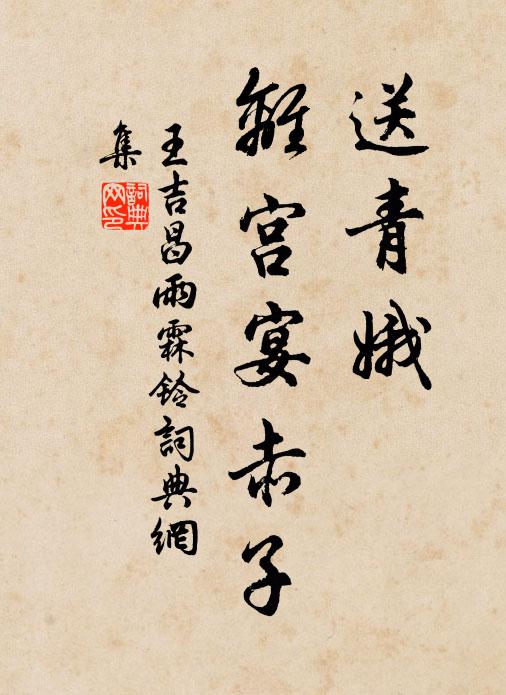 送青娥
離宮宴赤子
王吉昌雨霖鈴詞典網
集
詞典
网印